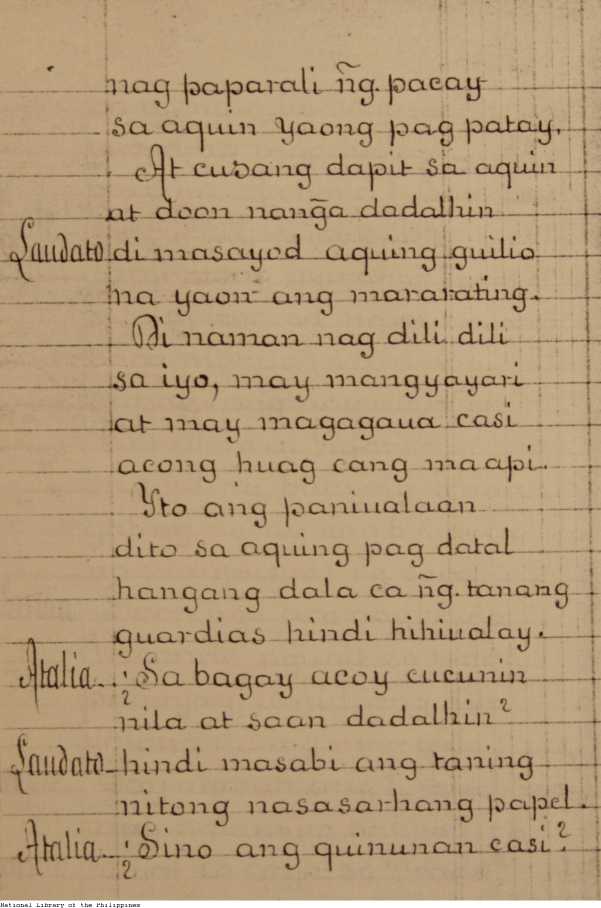 nag paparali ñg. pacay
sa aquin yaong pag patay,
At cusang dapit sa aquin
at doon nang̃a dadalhin
Laudato di masayod aquing guilio
na yaon ang mararating.
Di naman nag dili dili
sa iyo, may mangyayari
at may magagaua casi
acong huag cang maapi.
Yto ang paniualaan
dito sa aquing pag datal
hangang dala ca ñg. tanang
guardias hindi hihiualay.
Atalia. ¿Sa bagay acoy cucunin
nila at saan dadalhin?
Laudato hindi masabi ang taning
nitong nasasarhang papel.
Atalia. ¿Sino ang quinunan casi?
National Library of the Philippines